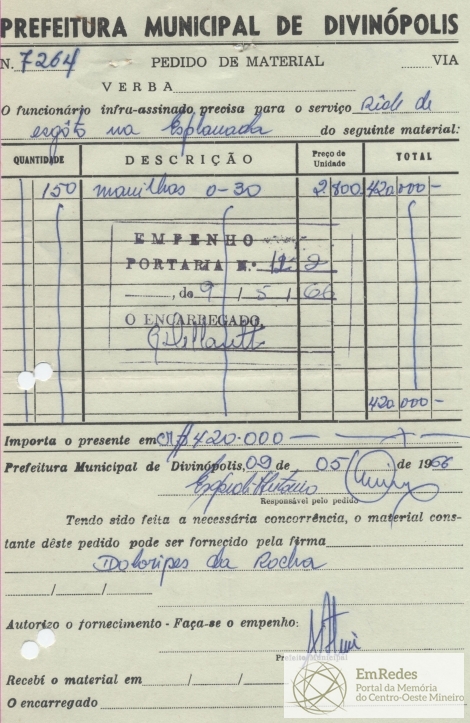 PREFEITURA MUNICIPAL DE DIVINÓPOLIS
N. 7264 PEDIDO DE MATERIAL VIA
VERBA
O funcionário infra-assinado precisa para o serviço Rêde de
esgôto na Esplanada do seguinte material:
QUANTIDADE DESCRIÇÃO Preço de Unidade TOTAL
150 manilhas 0-30 2.800 420.000-
EMPENHO
PORTARIA N.º
, de 9 / 5 / 66
O ENCARREGADO,
420.000-
Importa o presente em Cr$ 420.000-
Prefeitura Municipal de Divinópolis, 09 de 05 de 1966
Responsável pelo pedido
Tendo sido feita a necessária concorrência, o material cons-
tante dêste pedido pode ser fornecido pela firma
Doloripes da Rocha
/ /
Autorizo o fornecimento - Faça-se o empenho:
Prefeito Municipal
Recebi o material em / /
O encarregado
EmRedes
Portal da Memória
do Centro-Oeste Mineiro